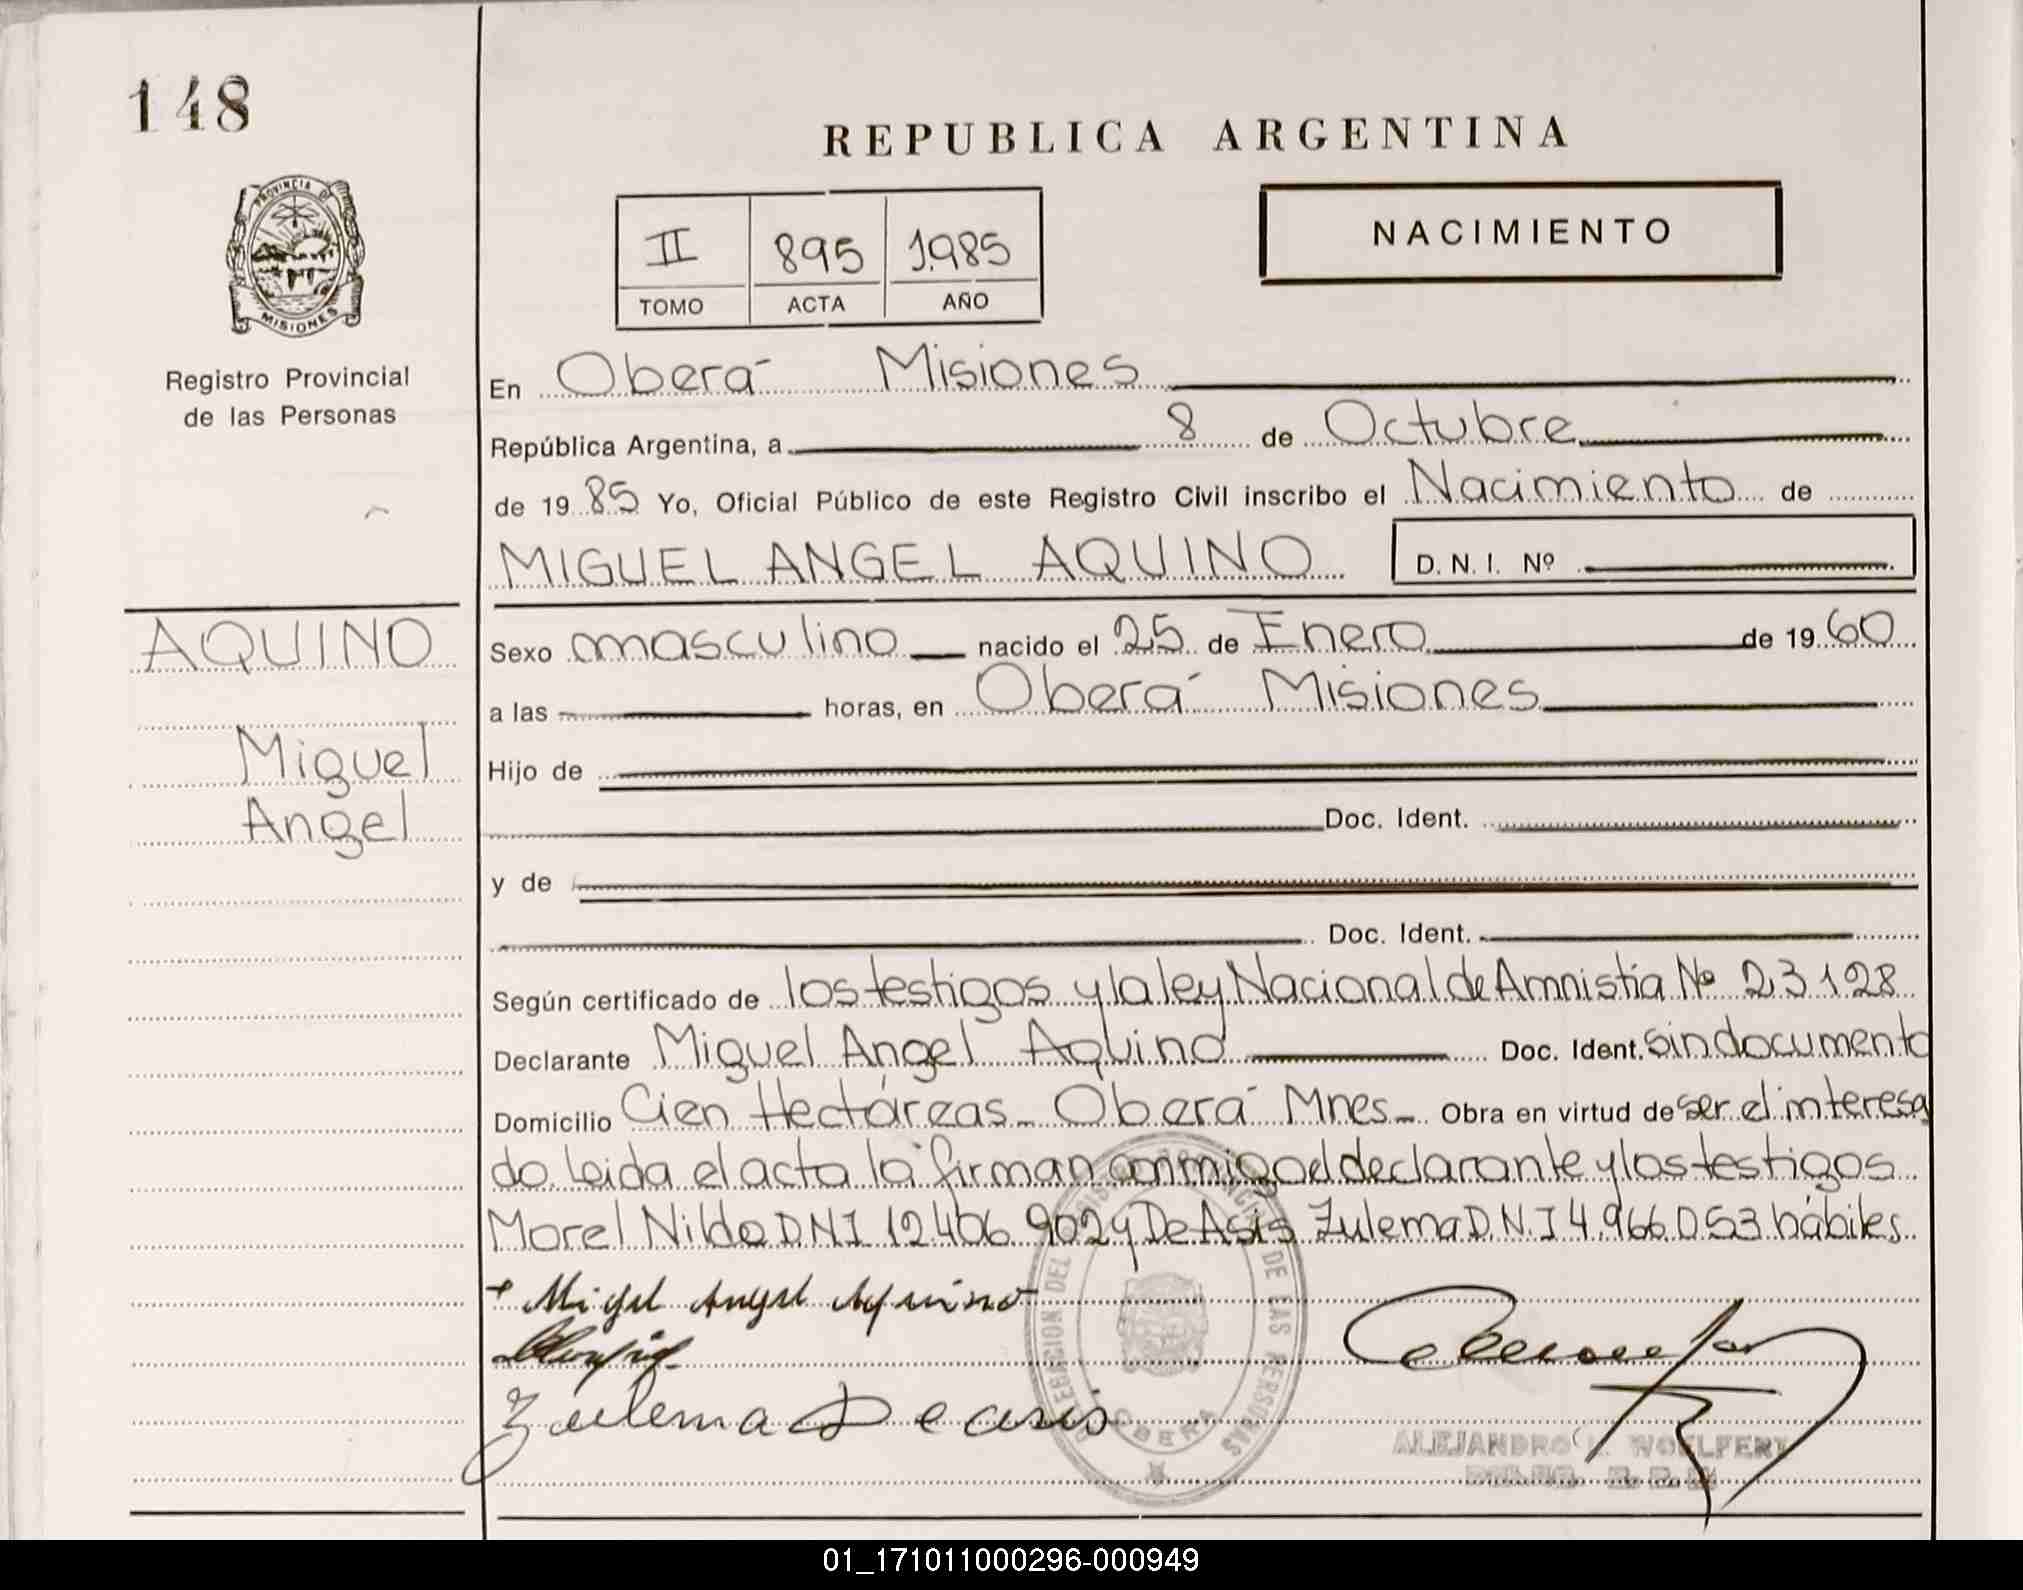 148
REPUBLICA ARGENTINA
II 895 1.985
TOMO ACTA AÑO
NACIMIENTO
PROVINCIA DE
MISIONES
Registro Provincial
de las Personas
En Oberá Misiones
República Argentina, a 8 de Octubre
de 19 85 Yo, Oficial Público de este Registro Civil inscribo el Nacimiento de
MIGUEL ANGEL AQUINO D.N.I. Nº
AQUINO
Miguel
Angel
Sexo masculino nacido el 25 de Enero de 19 60
a las horas, en Oberá Misiones
Hijo de
Doc. Ident.
y de
Doc. Ident.
Según certificado de los testigos y la ley Nacional de Amnistía Nº 23128
Declarante Miguel Angel Aquino Doc. Ident. Sin documento
Domicilio Cien Hectáreas - Oberá Mnes - Obra en virtud de ser el interesa
do Leida el acta la firman conmigo el declarante y los testigos
Morel Nildo DNI 12406 902 y De Asis Zulema D.N.I 4.966.053 hábiles.
+ Migel Angel Aquino
Zulema De asis
DELEGACION DEL REGISTRO PROVINCIAL DE LAS PERSONAS
OBERA
ALEJANDRO WOELFERT
01_171011000296-000949